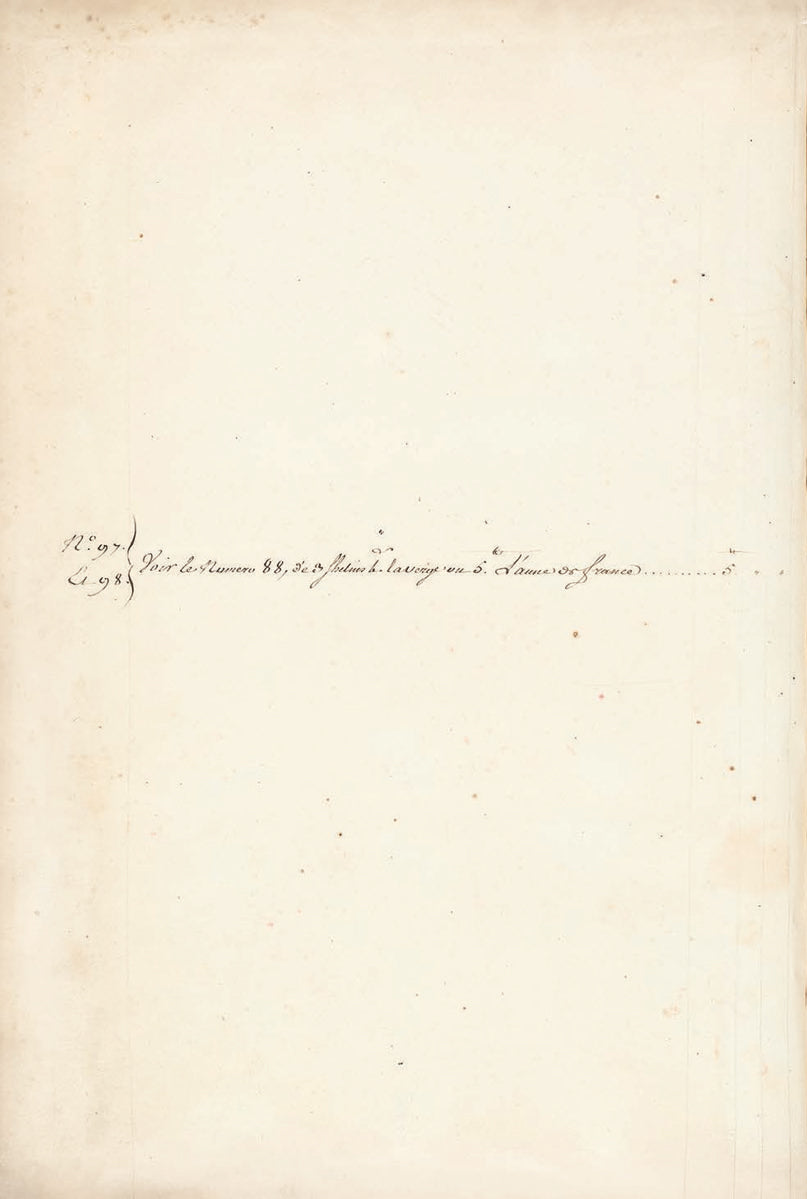 N.° 97.
Et 98.
Voir le Numero 88, de 3 la verge ou 5.ᵗᵗ L'aune de france .......... 5.ᵗᵗ " "